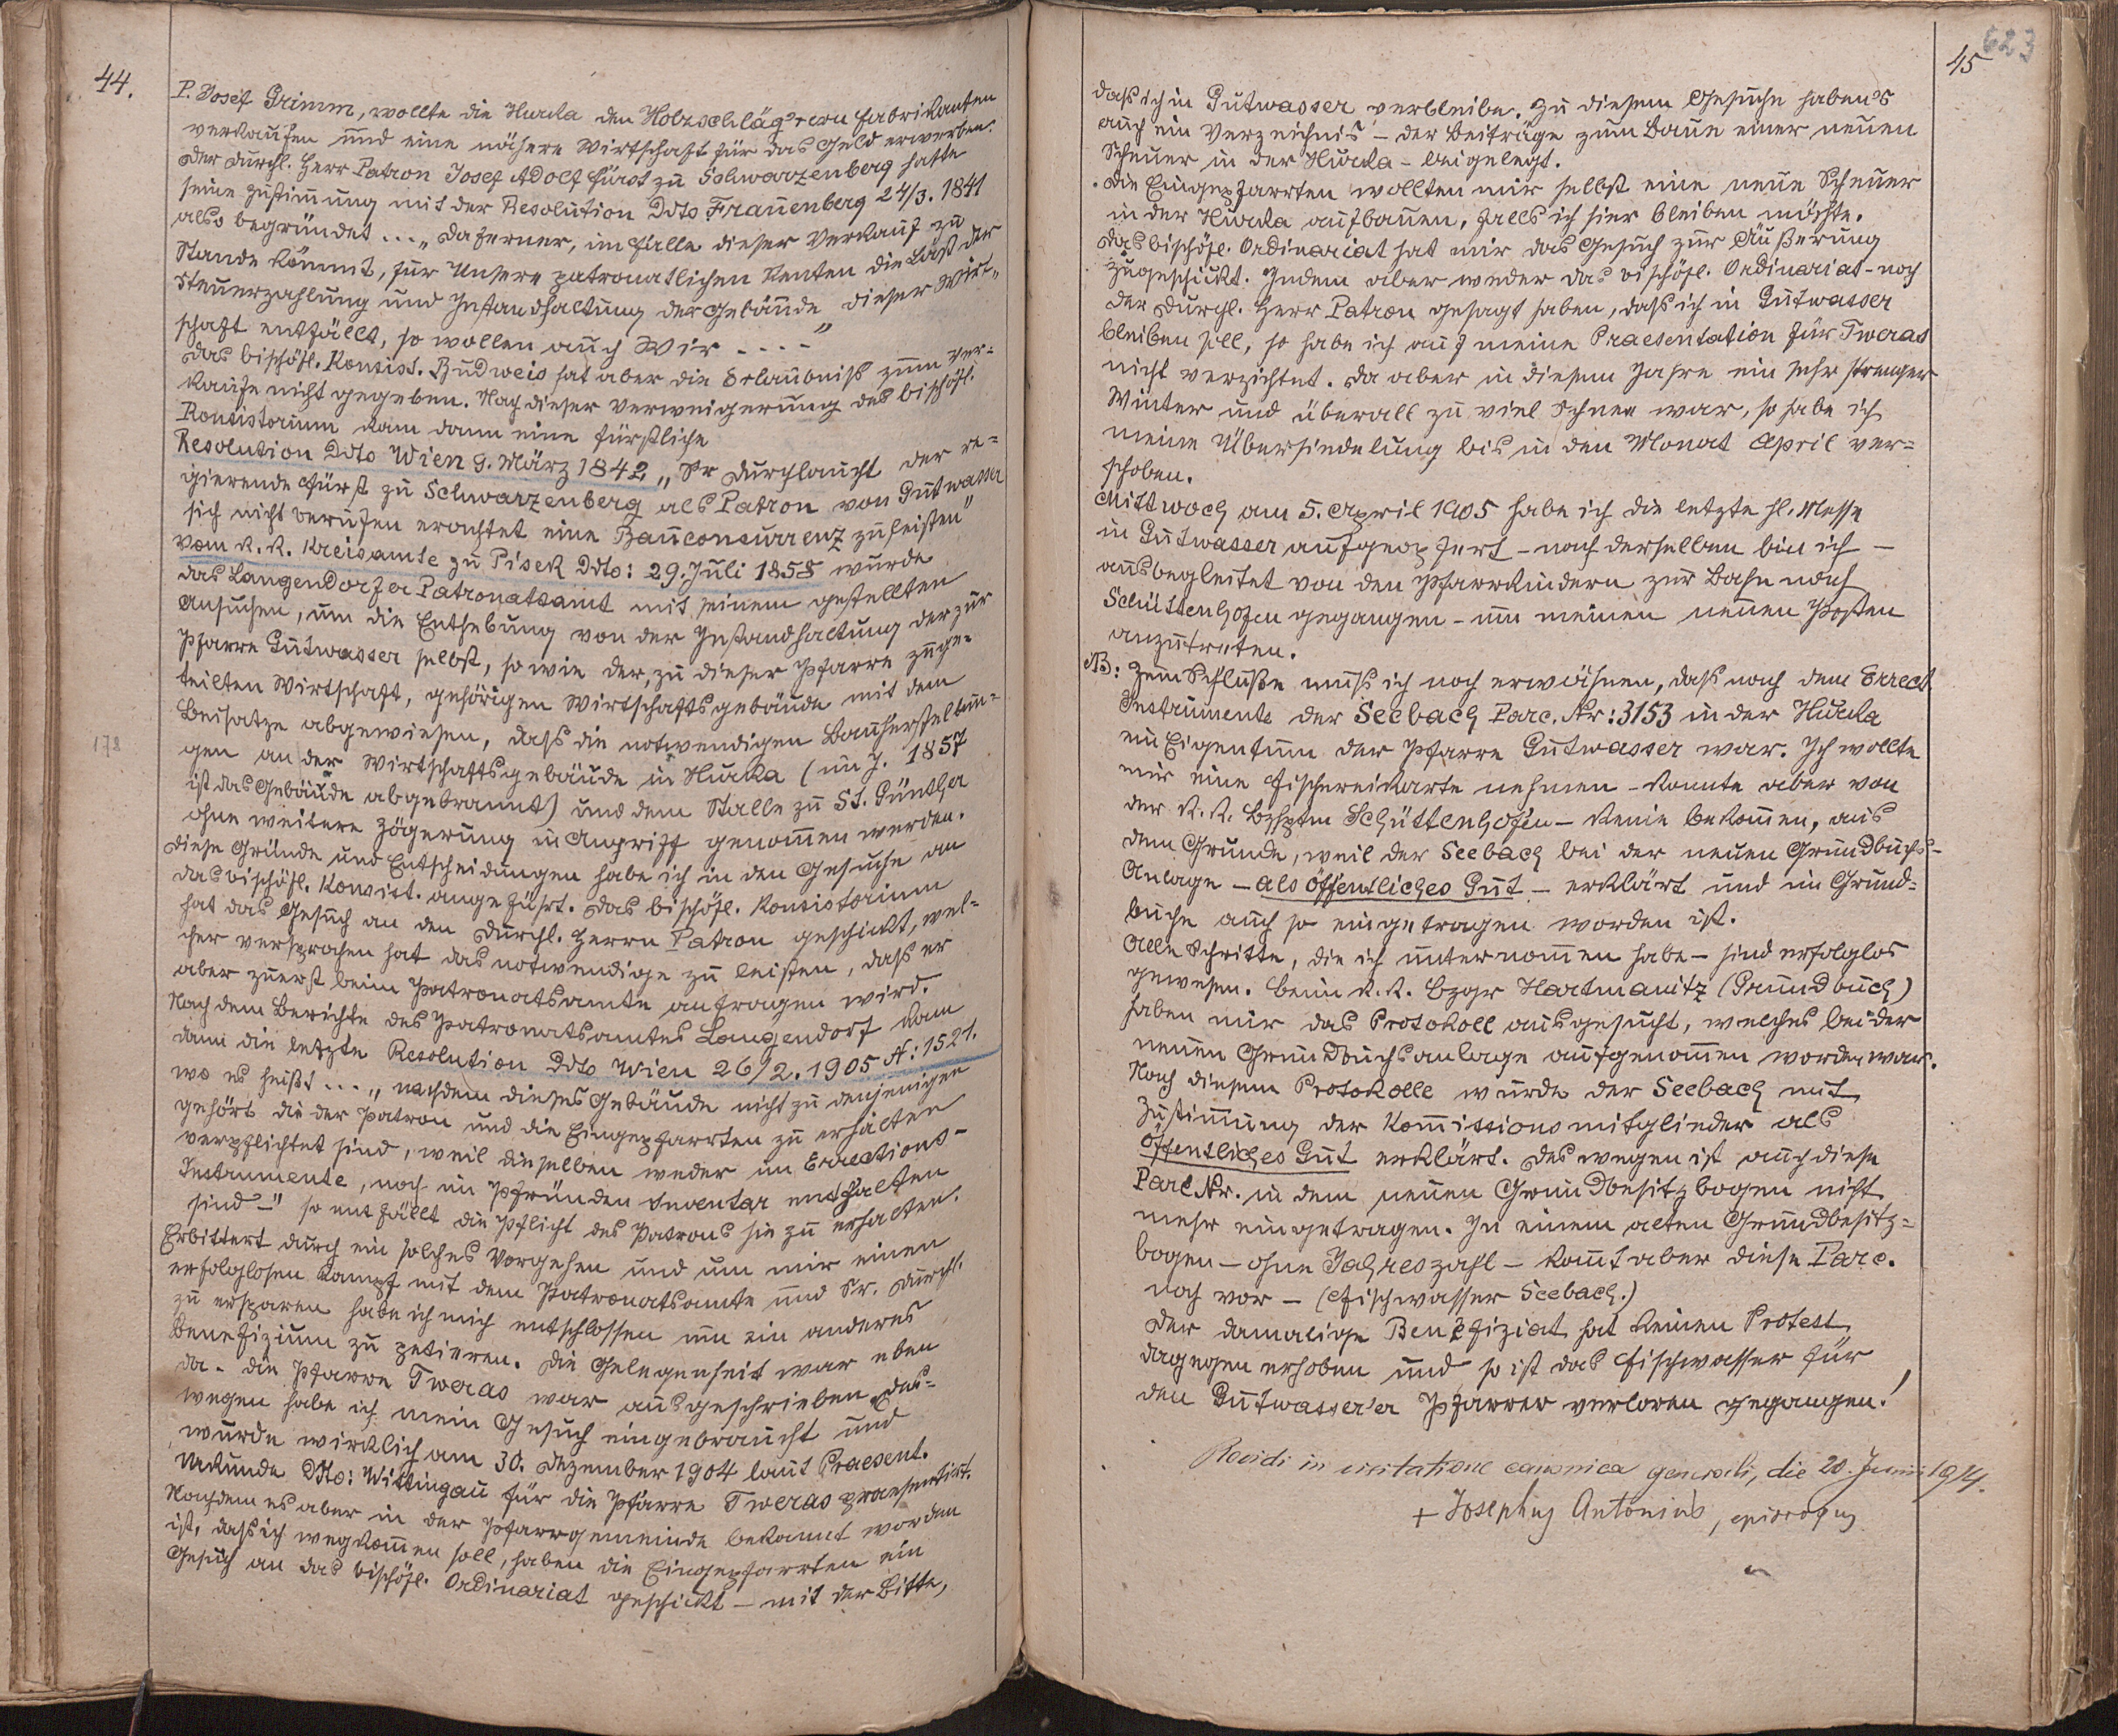 44.
P. Josef Grimm, wollte die Hurka den Holzschläger'schen Fabrikanten
verkaufen und eine nähere Wirtschaft für das Geld erwerben.
Der durchl. Herr Patron Josef Adolf Fürst zu Schwarzenberg hatte
seine Zustimmung mit der Resolution ddto Frauenberg 24/3. 1841
also begründet ... „Da ferner, im Falle dieser Verkauf zu
Stande kömmt, für Unsere patronatlichen Renten die Last der
Steuerzahlung und Instandhaltung der Gebäude dieser Wirt-
schaft entfällt, so wollen auch Wir - - - -"
Das bischöfl. Konsist. Budweis hat aber die Erlaubniß zum Ver=
kaufe nicht gegeben. Nach dieser Verweigerung des bischöfl.
Konsistorium kam dann eine fürstliche
Resolution ddto Wien 9. März 1842 „Sr Durchlaucht der re=
gierende Fürst zu Schwarzenberg als Patron von Gutwasser
sich nicht berufen erachtet eine Bauconcurrenz zu leisten"
Vom k. k. Kreisamte zu Pisek ddto: 29. Juli 1858 wurde
das Langendorfer Patronatsamt mit seinem gestellten
Ansuchen, um die Enthebung von der Instandhaltung der zur
Pfarre Gutwasser selbst, so wie der, zu dieser Pfarre zuge=
teilten Wirtschaft, gehörigen Wirtschaftsgebäude mit dem
Beisatze abgewiesen, daß die notwendigen Bauherstellun=
gen an der Wirtschaftsgebäude in Hurka (im J. 1857
178
ist das Gebäude abgebrannt) und dem Stalle zu St. Günther
ohne weitere Zögerung in Angriff genommen werden.
Diese Gründe und Entscheidungen habe ich in den Gesuche an
das bischöfl. Konsist. angeführt. Das bischöfl. Konsistorium
hat das Gesuch an den durchl. Herrn Patron geschickt, wel=
cher versprochen hat das notwendige zu leisten, daß er
aber zuerst beim Patronatsamte antragen wird.
Nach dem Berichte des Patronatsamtes Langendorf kam
dann die letzte Resolution ddto Wien 26/2. 1905 N: 1521.
wo es heißt ... „nachdem dieses Gebäude nicht zu denjenigen
gehört die der Patron und die Eingepfarrten zu erhalten
verpflichtet sind, weil dieselben weder im Erections-
Instrumente, noch im Pfründen Inventar enthalten
sind -" so entfällt die Pflicht des Patrons sie zu erhalten.
Erbittert durch ein solches Vorgehen und um mir einen
erfolglosen Kampf mit dem Patronatsamte und Sr. Durchl.
zu ersparen habe ich mich entschlossen um ein anderes
Benefizium zu petieren. Die Gelegenheit war eben
da - die Pfarre Tweras war ausgeschrieben, des=
wegen habe ich mein Gesuch eingebraucht und
wurde wirklich am 30. Dezember 1904 laut Praesent.
Urkunde ddto: Wittingau für die Pfarre Tweras praesentirt.
Nachdem es aber in der Pfarrgemeinde bekannt worden
ist, daß ich wegkommen soll, haben die Eingepfarrten ein
Gesuch an das bischöfl. Ordinariat geschickt - mit der Bitte,
623
45
daß ich in Gutwasser verbleibe. Zu diesem Gesuche haben's
auch ein Verzeichnis - der Beiträge zum Baue einer neuen
Scheuer in der Hurka - beigelegt.
Die Eingepfarrten wollten mir selbst eine neue Scheuer
in der Hurka aufbauen, falls ich hier bleiben möchte.
Das bischöfl. Ordinariat hat mir das Gesuch zur Äußerung
zugeschickt. Indem aber weder das bischöfl. Ordinariat - noch
der durchl. Herr Patron gesagt haben, daß ich in Gutwasser
bleiben soll, so habe ich auf meine Praesentation für Tweras
nicht verzichtet. Da aber in diesem Jahre ein sehr strenger
Winter und überall zu viel Schnee war, so habe ich
meine Übersiedelung bis in den Monat April ver=
schoben.
Mittwoch am 5. April 1905 habe ich die letzte hl. Messe
in Gutwasser aufgeopfert - nach derselben bin ich -
ausbegleitet von den Pfarrkindern zur Bahn nach
Schüttenhofen gegangen - um meinen neuen Posten
anzutreten.
NB: Zum Schluße muß ich noch erwähnen, daß nach dem Errect.
Instrumente der Seebach Parc. Nr: 3153 in der Hurka
ein Eigentum der Pfarre Gutwasser war. Ich wollte
mir eine Fischereikarte nehmen - konnte aber von
der k. k. Bzhptm Schüttenhofen - keine bekommen, aus
dem Grunde, weil der Seebach bei der neuen Grundbuchs-
Anlage - als öffentliches Gut - erklärt und im Grund=
buche auch so eingetragen worden ist.
Alle Schritte, die ich unternommen habe - sind erfolglos
gewesen. Beim k. k. Bzgr Hartmanitz (Grundbuch)
haben mir das Protokoll ausgesucht, welches bei der
neuen Grundbuchsanlage aufgenommen worden war.
Nach diesem Protokolle wurde der Seebach mit
Zustimmung der Kommissionsmitglieder als
öffentliches Gut erklärt. Deswegen ist auch diese
Parc Nr. in dem neuen Grundbesitzbogen nicht
mehr eingetragen. In einem alten Grundbesitz=
bogen - ohne Jahreszahl - kommt aber diese Parc.
noch vor - (Fischwasser Seebach.)
Der damalige Benefiziat hat keinen Protest
dagegen erhoben und so ist das Fischwasser für
den Gutwasser'er Pfarrer verloren gegangen!
Revidi in visitatione canonica generali, die 20. Junii 1914.
+ Josephus Antonius, episcopus